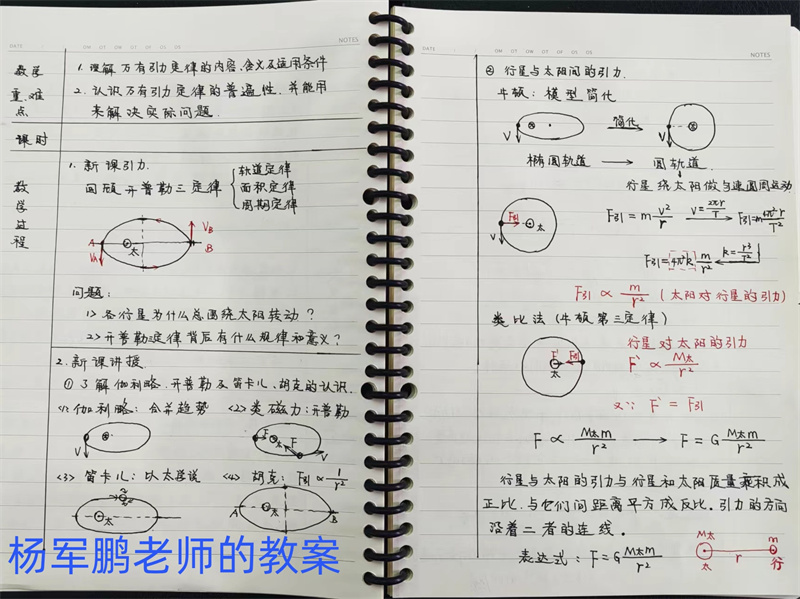 DATE
OM OT OW OT OF OS OS
NOTES
教学
重、难点
1. 理解万有引力定律的内容、含义及适用条件
2. 认识万有引力定律的普遍性，并能用
来解决实际问题.
课时
教学过程
1. 新课引力.
回顾开普勒三定律
轨道定律
面积定律
周期定律
A
VA
太
VB
B
问题：
1> 各行星为什么总围绕太阳转动？
2> 开普勒三定律背后有什么规律和意义？
2. 新课讲授
① 了解伽利略、开普勒及笛卡儿、胡克的认识.
<1> 伽利略：合并趋势 <2> 类磁力：开普勒
V
F
太
F
V
<3> 笛卡儿：以太学说 <4> 胡克：F引 ∝ 1/r²
太
A
太
B
杨军鹏老师的教案
DATE
OM OT OW OT OF OS OS
NOTES
② 行星与太阳间的引力.
牛顿：模型简化
V
简化
V
椭圆轨道 → 圆轨道
行星绕太阳做匀速圆周运动
F引
太
V
F引 = m V²/r
V = 2πr/T
F引 = m 4π²r/T²
F引 = 4π²k m/r²
k = r³/T²
F引 ∝ m/r² (太阳对行星的引力)
类比法 (牛顿第三定律)
F' F引
太
行星对太阳的引力
F' ∝ M太/r²
又∵ F' = F引
F ∝ M太m/r² → F = G M太m/r²
行星与太阳的引力与行星和太阳质量乘积成
正比，与它们间距离平方成反比. 引力的方向
沿着二者的连线.
表达式：F = G M太m/r²
M太
太
r
m
行